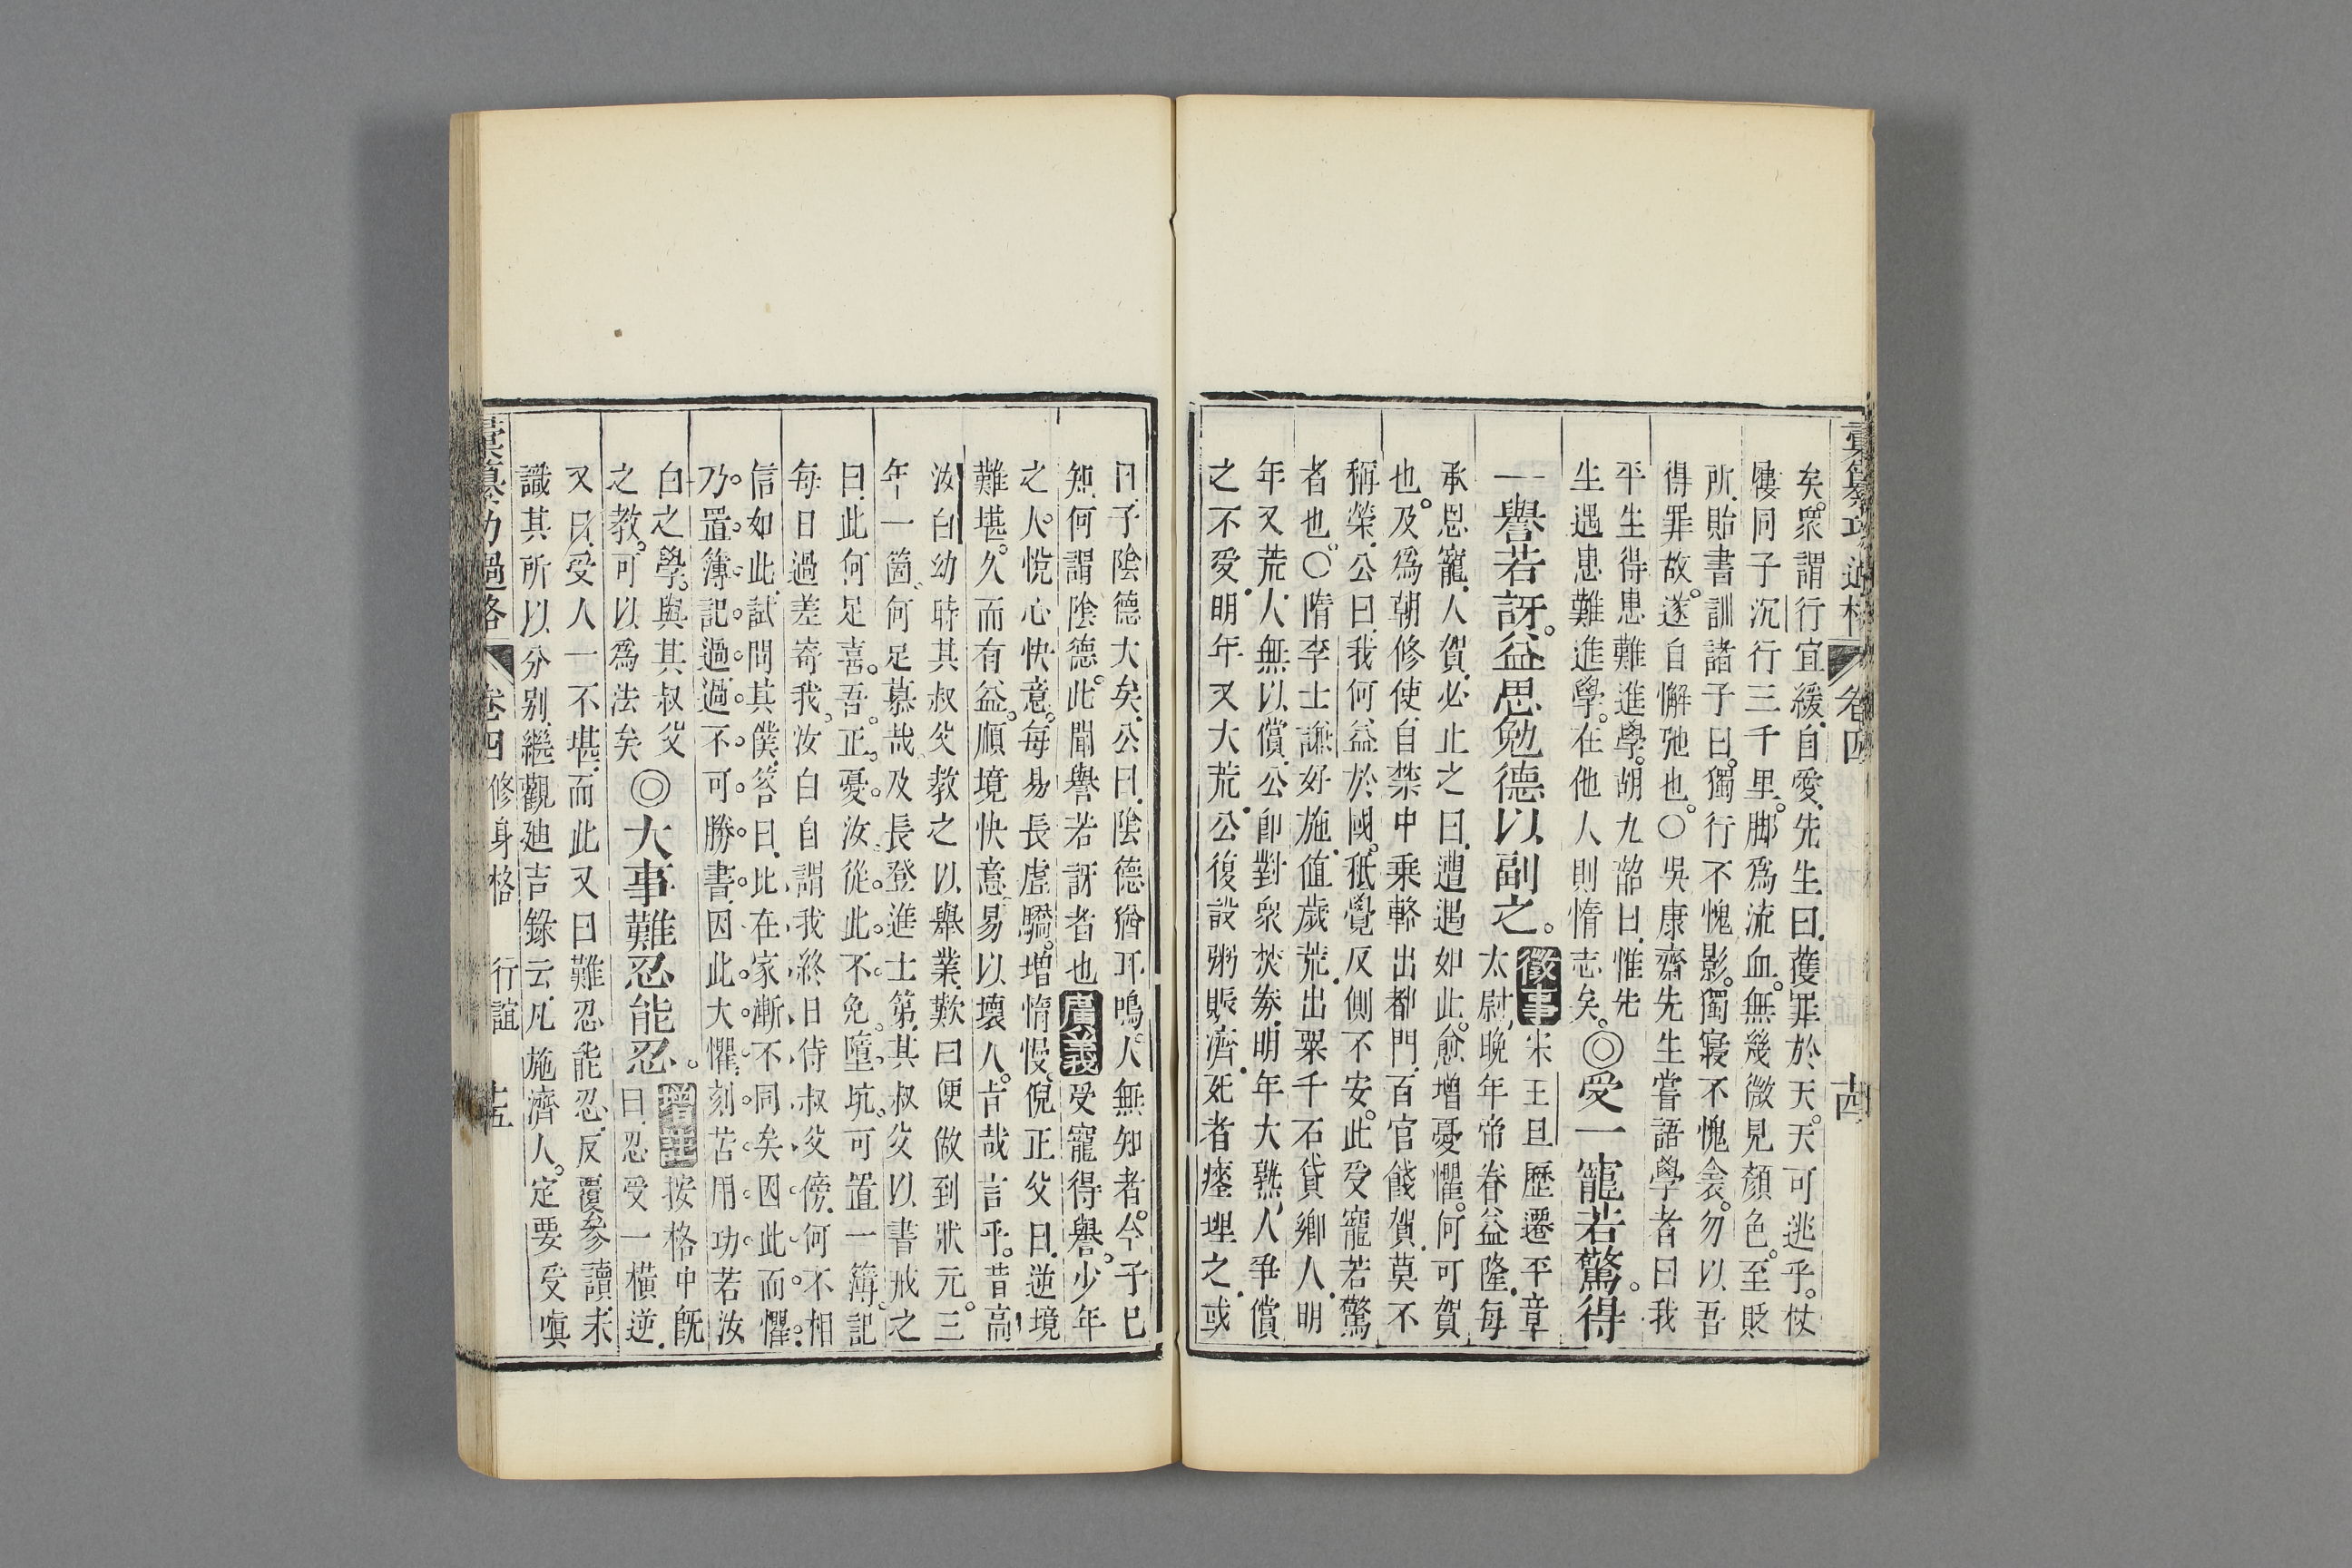 彙纂功過格 卷四 十四
矣。眾謂行宜緩自愛先生曰獲罪於天。天可逃乎。仗
屨同子沉行三千里。脚爲流血。無幾微見顏色。至貶
所貽書訓諸子曰。獨行不愧影。獨寢不愧衾。勿以吾
得罪故。遂自懈弛也。○吳康齋先生嘗語學者曰我
平生得患難進學。胡九韶曰惟先
生遇患難進學。在他人則惰志矣。◎受一寵若驚。得
一譽若訝。益思勉德以副之。徵事宋王旦歷遷平章
太尉晚年帝眷益隆每
承恩寵人賀必止之曰遭遇如此。愈增憂懼。何可賀
也。及爲朝修使自禁中乘輅出都門百官餞賀莫不
稱榮公曰我何益於國。秪覺反側不安。此受寵若驚
者也。○隋李士謙好施值歲荒出粟千石貸鄉人明
年又荒人無以償公即對眾焚券明年大熟人爭償
之不受明年又大荒公復設粥賑濟死者瘞埋之或
曰子陰德大矣公曰陰德猶耳鳴。人無知者。今子已
知何謂陰德。此聞譽若訝者也廣義受寵得譽。少年
之人。恍心快意。每易長虛驕。增惰慢。倪正父曰逆境
難堪。久而有益。順境快意易以壞人。旨哉言乎。昔高
汝白幼時其叔父教之以舉業歎曰便做到狀元。三
年一箇何足慕哉及長登進士第其叔父以書戒之
曰此何足喜。吾正憂汝從此不免墮坑可置一簿。記
每日過差寄我汝白自謂我終日侍叔父傍何不相
信如此試問其僕答曰比在家漸不同矣因此而懼。
乃置簿記過過不可勝書因此大懼刻苦用功若汝
白之學。與其叔父
之教。可以爲法矣◎大事難忍能忍。增註按格中旣
曰忍受一橫逆
又曰受人一不堪而此又曰難忍能忍反覆參讀未
識其所以分別繼觀廸吉錄云凡施濟人。定要受嗔
彙纂功過格 卷四 修身格 行誼 十五